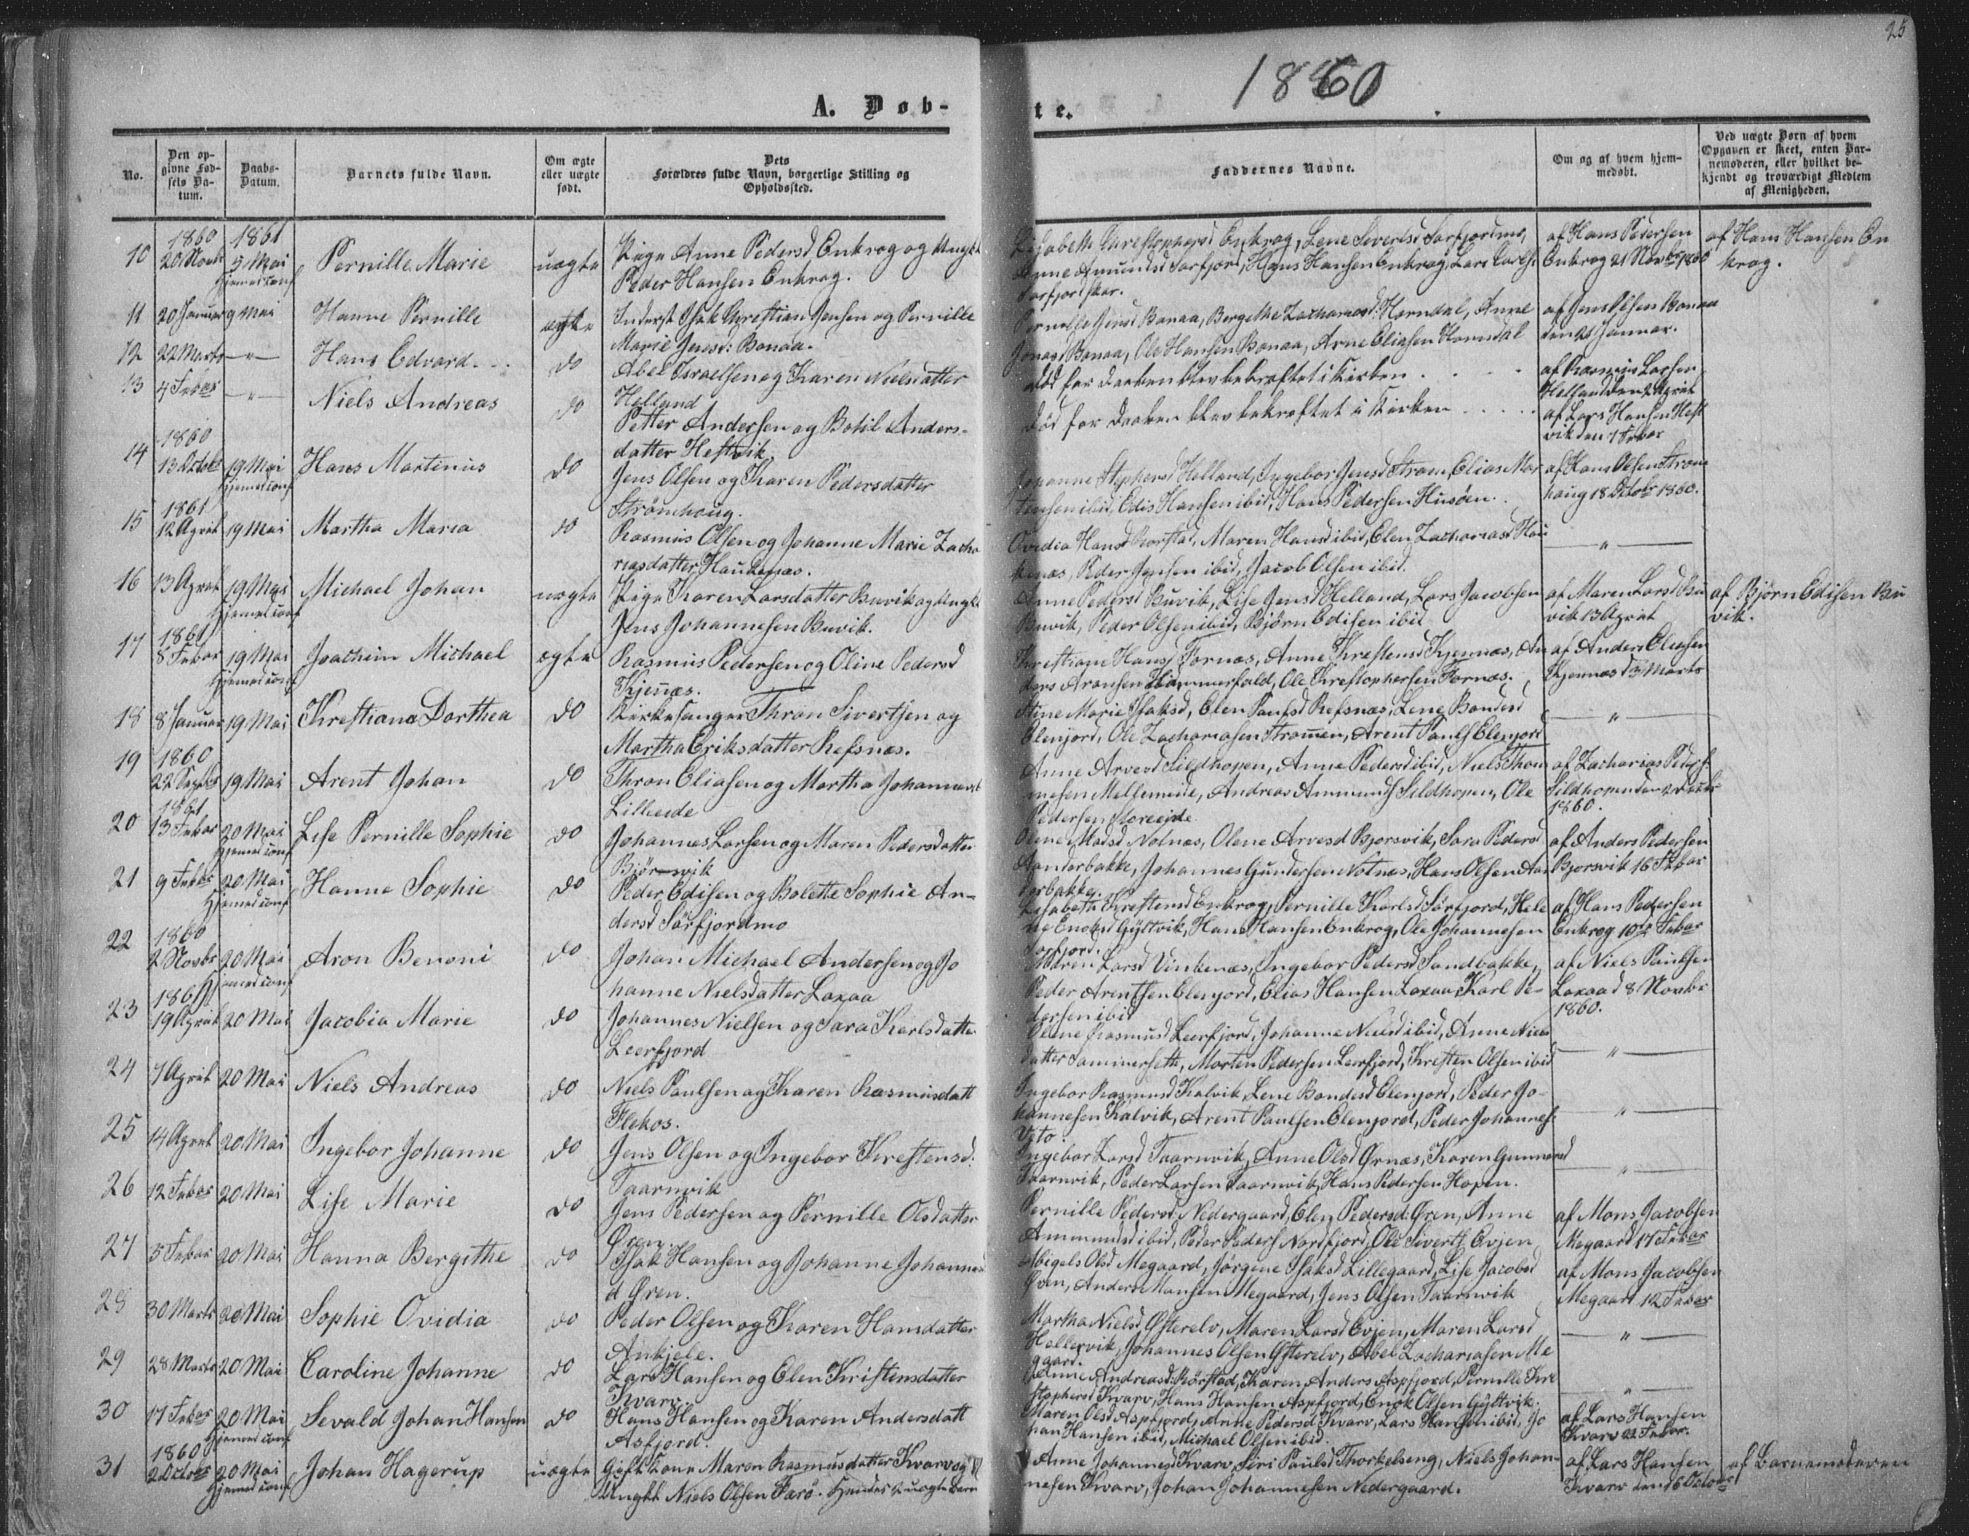 25
1860
A. Døb-
te.
No.
Den op-
givne Fød-
sels Da-
tum.
Daabs-
Datum.
Barnets fulde Navn.
Om ægte
eller uægte
født.
Dets
Forældres fulde Navn, borgerlige Stilling og
Opholdssted.
Faddernes Navne.
Om og af hvem hjem-
medøbt.
Ved uægte Børn af hvem
Opgaven er skeet, enten Bar-
nemoderen, eller hvilket be-
kjendt og troværdigt Medlem
af Menigheden.
10 1860 20 Novbr 1861 9 Mai hjemed conf Pernille Marie uægte Pige Anne Pedersd Enkrog og Ungk
Peder Hansen Enkrog.
Lene Severtsd Sørfjordmo,
Anne Amundsd Sørfjord, Hans Hansen Enkrog, Lars
af Hans Pedersen
Enkrog 21 Novbr 1860
af Hans Hansen En
krog.
11 20 Januar 9 Mai Hanne Pernille ægte Inderst Isak Christian Jensen og Pernille
Marie Jensd: Bonaa.
Jensd Bonaa, Bergithe Zachariasd: Horndal, Anne
Bonaa, Ole Hansen Bonaa, Arne Eliasen Horndal
af Jens Olsen Bonaa
den 21 Januar.
12 22 Marts -"- Hans Edvard do Abel Israelsen og Karen Nielsdatter
Helland
død før daaben blev bekræftet i Kirken
af Rasmus Larsen
Helland den 2 April
13 4 Febar -"- Niels Andreas do Petter Andersen og Bohil Anders-
datter Heftvik.
Død før daaben blev bekræftet i Kirken
af Lars Hansen Heft
vik den 7 Febar
14 1860 13 Octobr 19 Mai hjemed conf Hans Martinus do Jens Olsen og Karen Pedersdatter
Strømhaug.
Helland, Ingebor Jensd Strøm, Elias Mar
tensen ibid, Edis Hansen ibid, Hans Pedersen Husøen.
af Hans Olsen Strøm
haug 18 Octobr 1860.
15 1861 12 April 19 Mai Martha Maria do Rasmus Olsen og Johanne Marie Zacha
riasdatter Haukenæs.
Ovedia Hansd Rørstad, Maren Hansd ibid, Elen Zachariasd Hau
kenæs, Peder Jensen ibid, Jacob Olsen ibid.
-"-
16 13 April 19 Mai hjemed conf Michael Johan uægte Pige Karen Larsdatter Buvik og Ungk
Jens Johannesen Buvik.
Anne Pedersd Buvik, Lise Jensd Helland, Lars Jacobsen
Buvik, Peder Olsen ibid, Bjørn Edisen ibid
af Maren Larsd Bu
vik 13 April
af Bjørn Edisen Bu
vik.
17 1861 8 Febar 19 Mai hjemed conf Joachim Michael ægte Rasmus Pedersen og Oline Pedersd
Kjennæs.
Kristiane Hansd Fornæs, Anne Krestensd Kjennæs, An
ders Aronsen Hammerfald, Ole Kristophersen Fornæs.
af Anders Eliasen
Kjennæs d 3 Marts
18 8 Januar 19 Mai Krestiana Dorthea do Kirkesanger Thron Sivertsen og
Martha Eriksdatter Refsnæs.
Stine Marie Isaksd, Elen Paulsd Refsnæs, Lene Bendesd
Elenjord, Ole Zachariasen Strømen, Arent Paulsen Elenjord
-"-
19 1860 22 19 Mai Arent Johan do Thron Eliasen og Martha Johannesd
Lilheide
Anne Arvesd Sildhopen, Anne Pedersd ibid, Niels Thom
mesen Mellemeide, Andreas Ammunds Sildhopen, Ole
Pedersen Storeeide
af Zacharias Peders
Sildhopen den 2
1860.
20 1861 13 Febar 20 Mai hjemed conf Lise Pernille Sophie do Johannes Larsen og Maren Pedersdatter
Bjørsvik
Olene Madsd Notnæs, Olene Arvesd Bjørsvik, Sara Pedersd
Johannes Gundersen Notnæs, Hans Olsen
af Anders Pedersen
Bjørsvik 16 Febar
21 9 Febar 20 Mai hjemed conf Hanna Sophie do Peder Edisen og Bolette Sophie An-
dersd Sørfjordmo
Lisabeth Krestensd Enkrog, Pernille Karlsd Sørfjord, Hele
ne Enoksd Gyltvik, Hans Hansen Enkrog, Ole Johannesen
Sørfjord.
af Hans Pedersen
Enkrog 10de Febar
22 1860 2 Novbr 20 Mai hjemed conf Aron Benoni do Johan Michael Andersen og Jo
hanne Nielsdatter Laxaa
Maren Larsd Vinkenæs, Ingebor Pedersd Sandbakke,
Peder Arentsen Elenjord, Elias Hansen Laxaa, Karl Pe-
dersen ibid
af Niels Paulsen
Laxaa d 8 Novbr
1860.
23 1861 19 April 20 Mai Jacobia Marie do Johannes Nielsen og Sara Karlsdatter
Leerfjord
Olene Rasmusd Leerfjord, Johanne Nielsd ibid, Anne Niels
datter Sommersette, Morten Pedersen Leerfjord, Kresten Olsen ibid
-"-
24 7 April 20 Mai Niels Andreas do Niels Paulsen og Karen Rasmusdatt
Flekos.
Ingebor Rasmusd Kalvik, Lene Bendesd Elenjord, Peder Jo-
hannesen Kalvik, Arent Paulsen Elenjord, Peder Johannes

-"-
25 14 April 20 Mai Ingebor Johanne do Jens Olsen og Ingebor Krestensd.
Taarnvik
Ingebor Larsd Taarnvik, Anne Olsd Ørnæs, Karen Gunnersd
Taarnvik, Peder Larsen Taarnvik, Hans Pedersen Hopen.
-"-
26 12 Febar 20 Mai Lise Marie do Jens Pedersen og Pernille Olsdatter
Øren.
Pernille Pedersd Nedergaard, Elen Pedersd Øren, Anne
Ammundsd ibid, Peder Peders Nordfjord, Ole Siverts Evjen
af Mons Jacobsen
Megaard 17 Febar
27 5 Febar 20 Mai Hanna Bergithe do Isak Hansen og Johanne Johannes
d Øren.
Abigels Olsd Megaard, Jørgene Isaksd Lillegaard, Lise Jacobsd
Øren, Anders Monsen Megaard, Jens Olsen Taarnvik
af Mons Jacobsen
Megaard 12 Febar
28 30 Marts 20 Mai Sophie Ovidia do Peder Olsen og Karen Hansdatter
Ankjele.
Martha Nielsd Østerelv, Maren Larsd Evjen, Maren Larsd
Hellervik, Johannes Olsen Østerelv, Abel Zachariasen Me
gaard.
-"-
29 28 Marts 20 Mai Caroline Johanne do Lars Hansen og Elen Kristensdatter
Kvarv.
Anne Andreasd: Rørstad, Karen Anders Aspfjord, Pernille Kri
stophersd Kvarv, Hans Hansen Aspfjord, Enok Olsen Gyltvik.
-"-
30 17 Febar 20 Mai hjemed conf Sevald Johan Hansen do Hans Hansen og Karen Andersdatt
Asfjord.
Maren Olsd Aspfjord, Anne Pedersd Kvarv, Lars Hansen ibid, Jo
han Hansen ibid, Michael Olsen ibid.
af Lars Hansen
Kvarv 22 Febar.
31 1860 2 Octobr 20 Mai hjemed conf Johan Hagerup uægte Gift Kone Maren Rasmusdatter Kvarv og
Ungk Niels Olsen Færø. Hendes 2 uægte Barn
Anne Johannesd Kvarv, Siri Paulsd Thorkelseng, Niels Johan-
nesen Kvarv, Johan Johannesen Nedergaard.
af Lars Hansen
Kvarv den 6 Octobr
af Barnemoderen